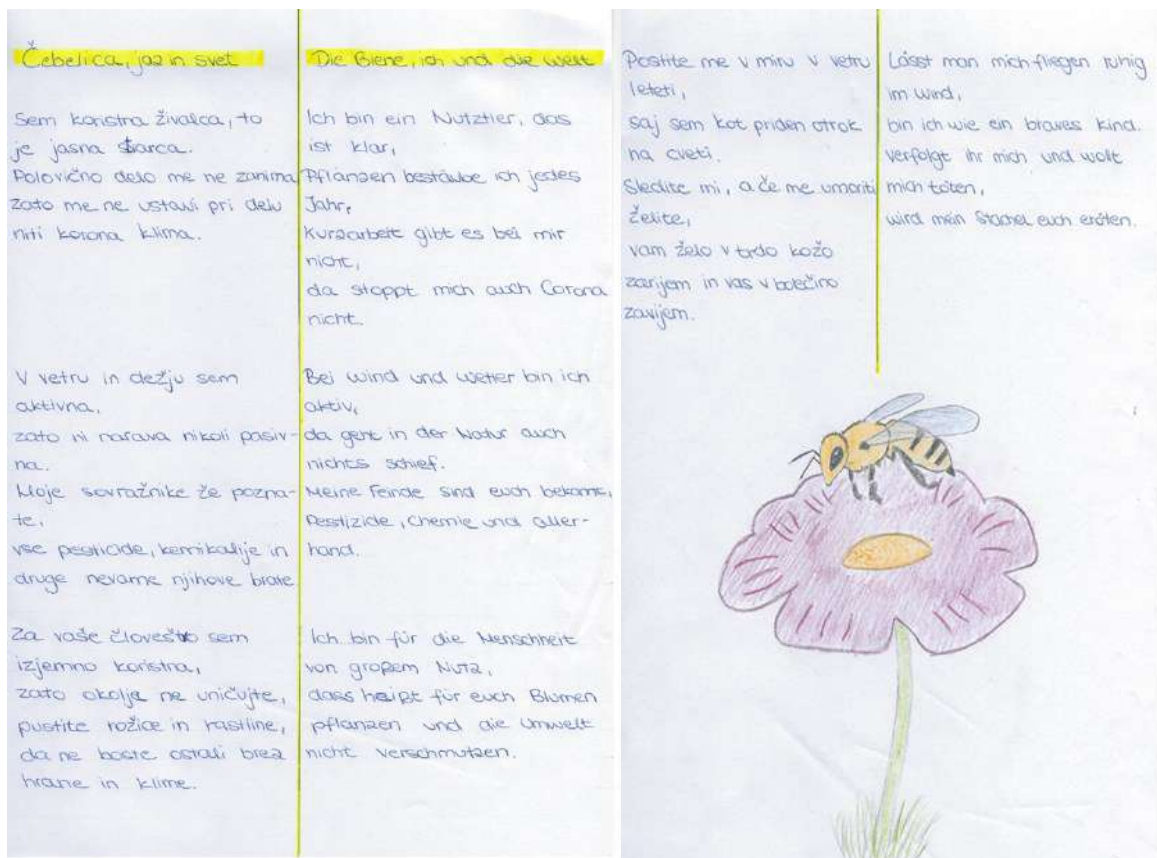 Čebelica, jaz in svet
Sem koristna živalca, to
je jasna šarca.
Polovično delo me ne zanima
zato me ne ustavi pri delu
niti korona klima.
V vetru in dežju sem
aktivna,
zato ni narava nikoli pasiv-
na.
Moje sovražnike že pozna-
te,
vse pesticide, kemikalije in
druge nevarne njihove brate
Za vaše človeštvo sem
izjemno koristna,
zato okolja ne uničujte,
pustite rožice in rastline,
da ne boste ostali brez
hrane in klime.
Die Biene, ich und die Welt
Ich bin ein Nutztier, das
ist klar,
Pflanzen bestäube ich jedes
Jahr,
Kurzarbeit gibt es bei mir
nicht,
da stoppt mich auch Corona
nicht.
Bei Wind und Wetter bin ich
aktiv,
da geht in der Natur auch
nichts schief.
Meine Feinde sind euch bekannt,
Pestizide, Chemie und aller-
hand.
Ich bin für die Menschheit
von großem Nutz,
dass heißt für euch Blumen
pflanzen und die Umwelt
nicht verschmutzen.
Postite me v miru v vetru
leteti,
saj sem kot priden otrok
na cveti.
Sledite mi, a če me umoriti
želite,
vam želo v trdo kožo
zarijem in vas v bolečino
zavijem.
Lässt man mich fliegen ruhig
im Wind,
bin ich wie ein braves Kind.
verfolgt ihr mich und wollt
mich töten,
wird mein Stachel euch eröten.